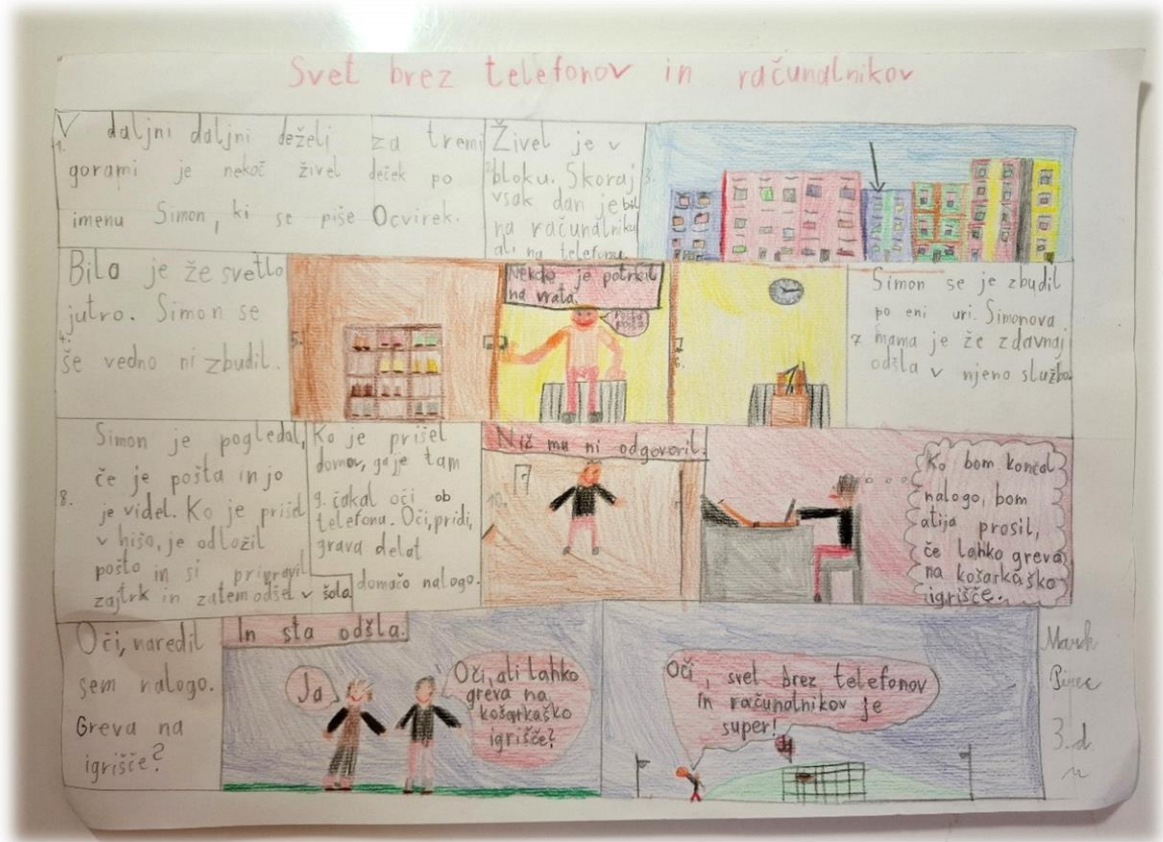 Svet brez telefonov in računalnikov
1.
V daljni daljni deželi za tremi
gorami je nekoč živel deček po
imenu Simon, ki se piše Ocvirek.
2.
Živel je v
bloku. Skoraj
vsak dan je bil
na računalniku
ali na telefonu.
3.
4.
Bilo je že svetlo
jutro. Simon se
še vedno ni zbudil.
5.
Nekdo je potrkal
na vrata.
Pošta
pošta
6.
7.
Simon se je zbudil
po eni uri. Simonova
mama je že zdavnaj
odšla v njeno službo.
8.
Simon je pogledal,
če je pošta in jo
je videl. Ko je prišel
v hišo, je odložil
pošto in si pripravil
zajtrk in zatem odšel v šolo.
9.
Ko je prišel
domov, ga je tam
čakal oči ob
telefonu. Oči, pridi,
grava delat
domačo nalogo.
10.
Nič mu ni odgovoril.
Ko bom končal
nalogo, bom
atija prosil,
če lahko greva
na košarkaško
igrišče.
Oči, naredil
sem nalogo.
Greva na
igrišče?
In sta odšla.
Ja
Oči, ali lahko
greva na
košarkaško
igrišče?
Oči, svet brez telefonov
in računalnikov je
super!
3. d